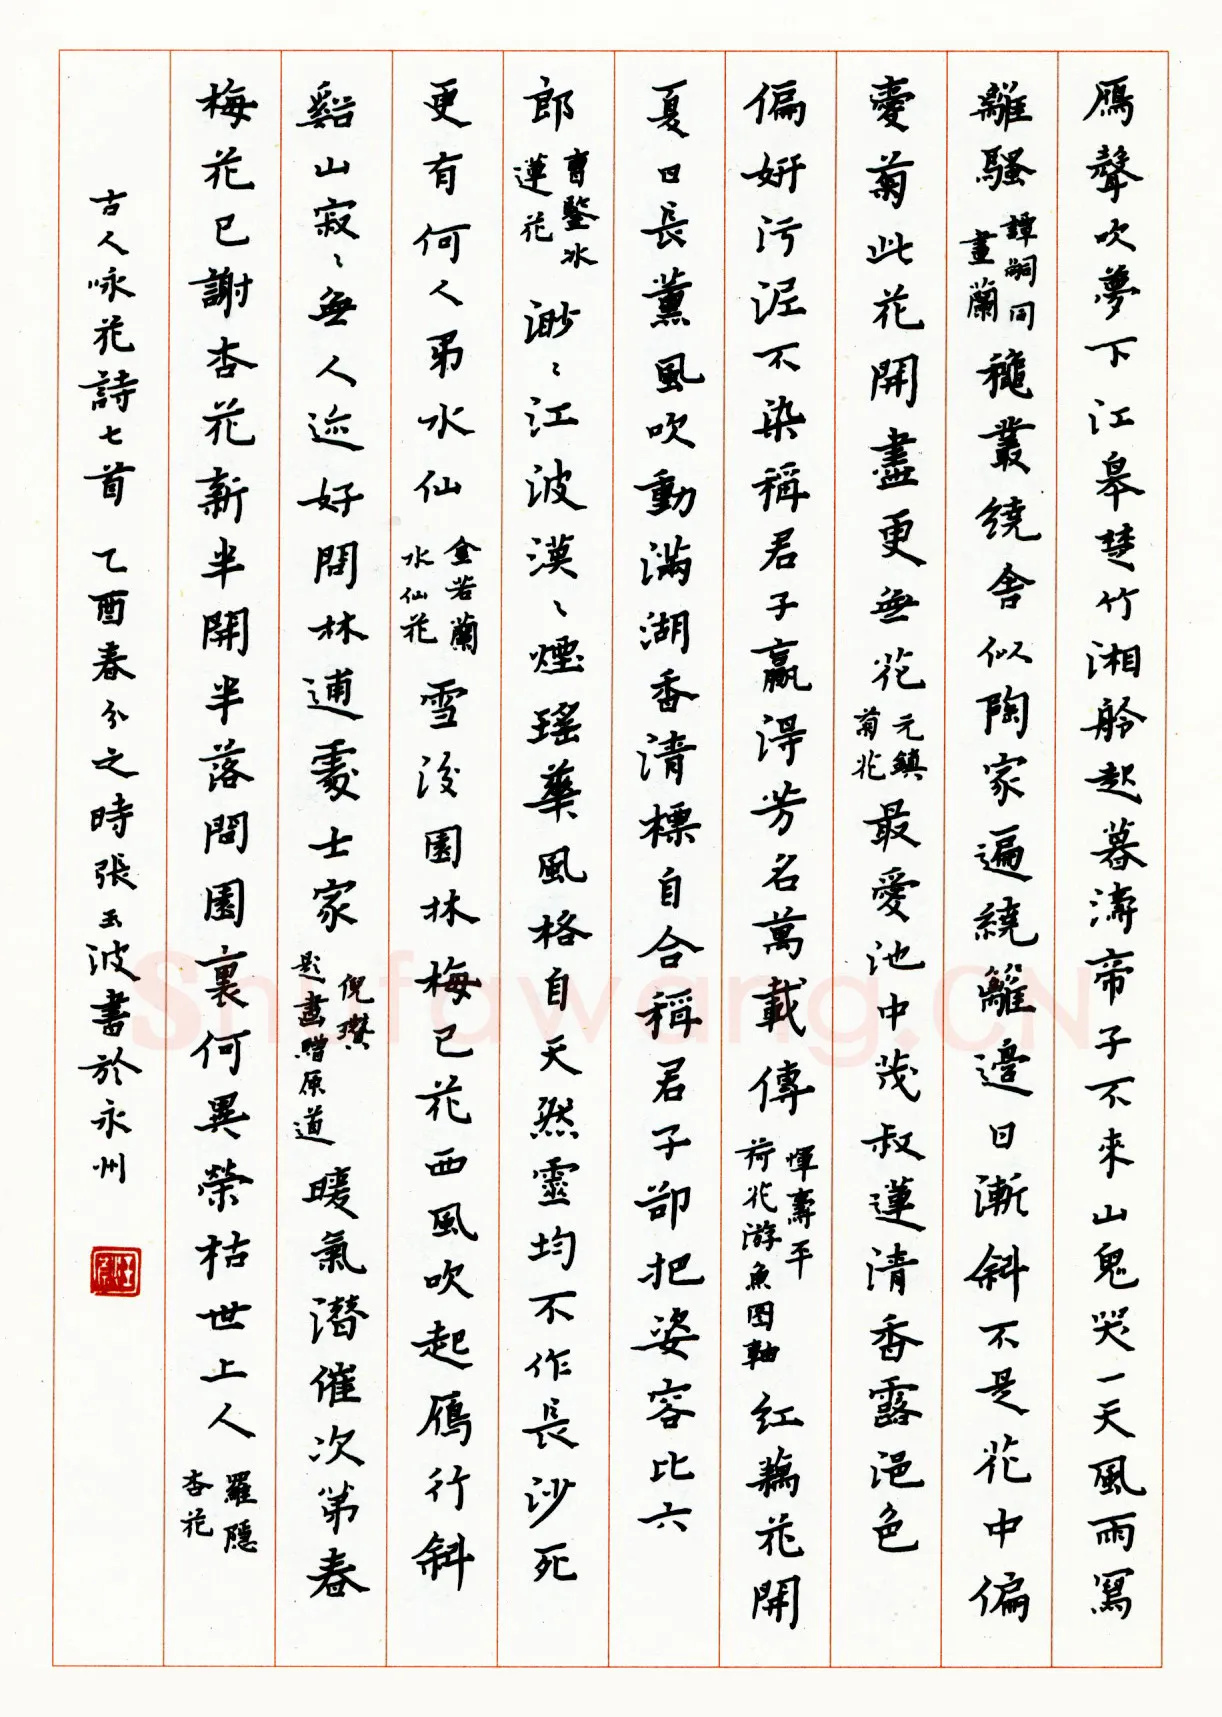 鴈聲吹夢下江皋楚竹湘舲起暮濤帝子不來山鬼哭一天風雨寫
離騷譚嗣同畫蘭穐叢繞舍似陶家遍繞籬邊日漸斜不是花中偏
愛菊此花開盡更無花元鎮菊花最愛池中茂叔蓮清香露浥色
偏妍污泥不染稱君子贏得芳名萬載傳惲壽平荷花游魚图軸红藕花開
夏日長薰風吹動滿湖香清標自合稱君子卻把姿容比六
郎曹鑒冰蓮花渺〻江波漠〻煙瑤華風格自天然靈均不作長沙死
更有何人弔水仙金若蘭水仙花雪後園林梅已花西風吹起鴈行斜
谿山寂〻無人迹好問林逋處士家倪瓚题畫贈原道暖氣潛催次第春
梅花已謝杏花新半開半落閒園裏何異榮枯世上人羅隱杏花
古人咏花詩七首 乙酉春分之時張玉波書於永州
Shufawang.CN